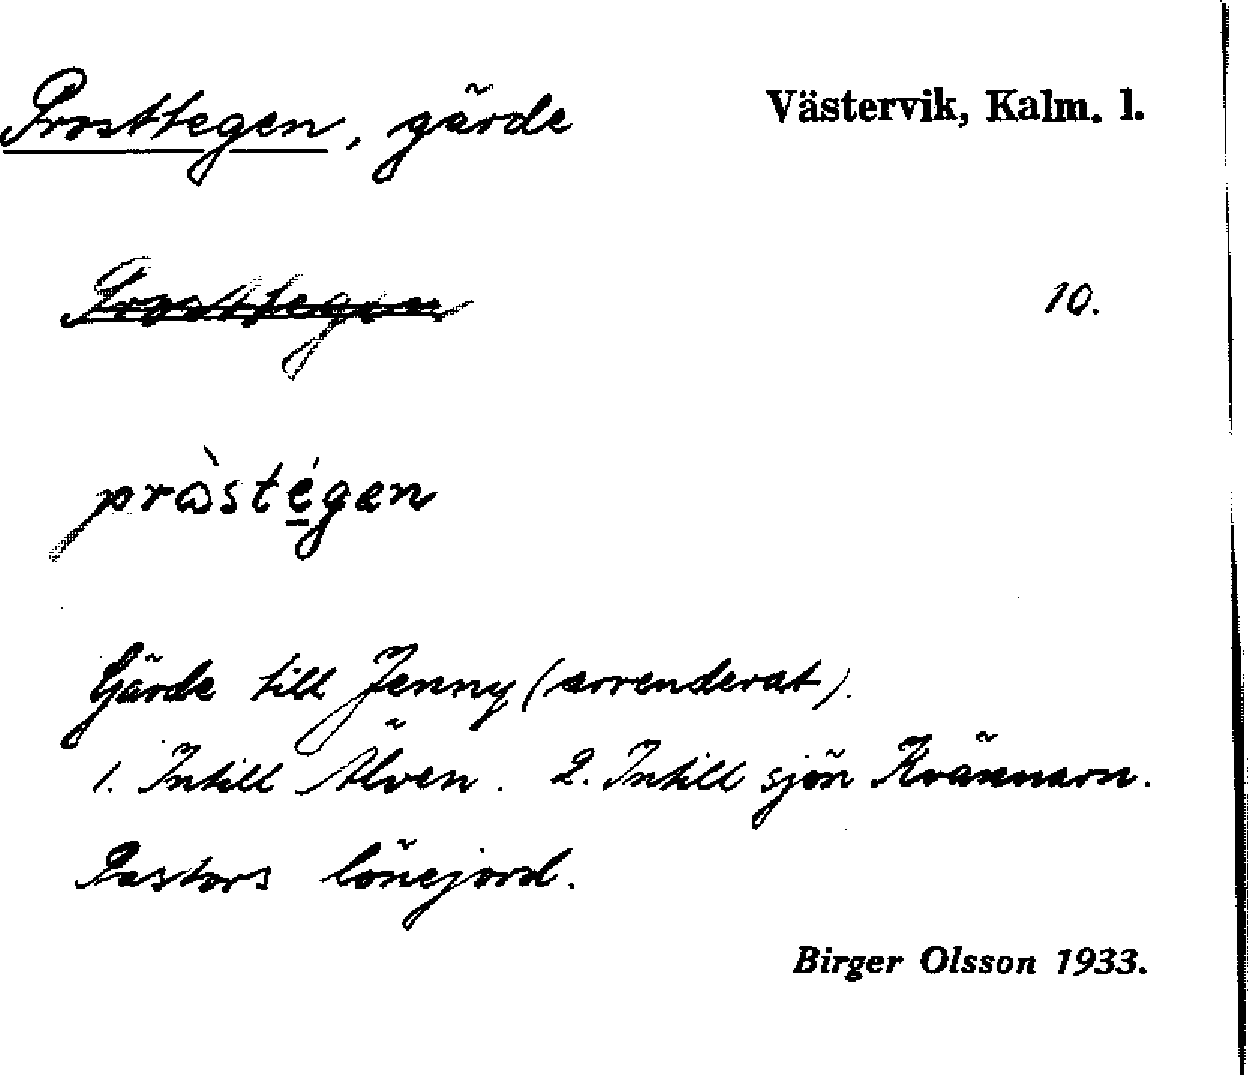 Prosttegen, gärde
Västervik, Kalm. l.
Prosttegen
10.
pròstégen
Gärde till Jenny (arrenderat).
1. Intill Älven. 2. Intill sjön Kvännarn.
Pastors lönejord.
Birger Olsson 1933.